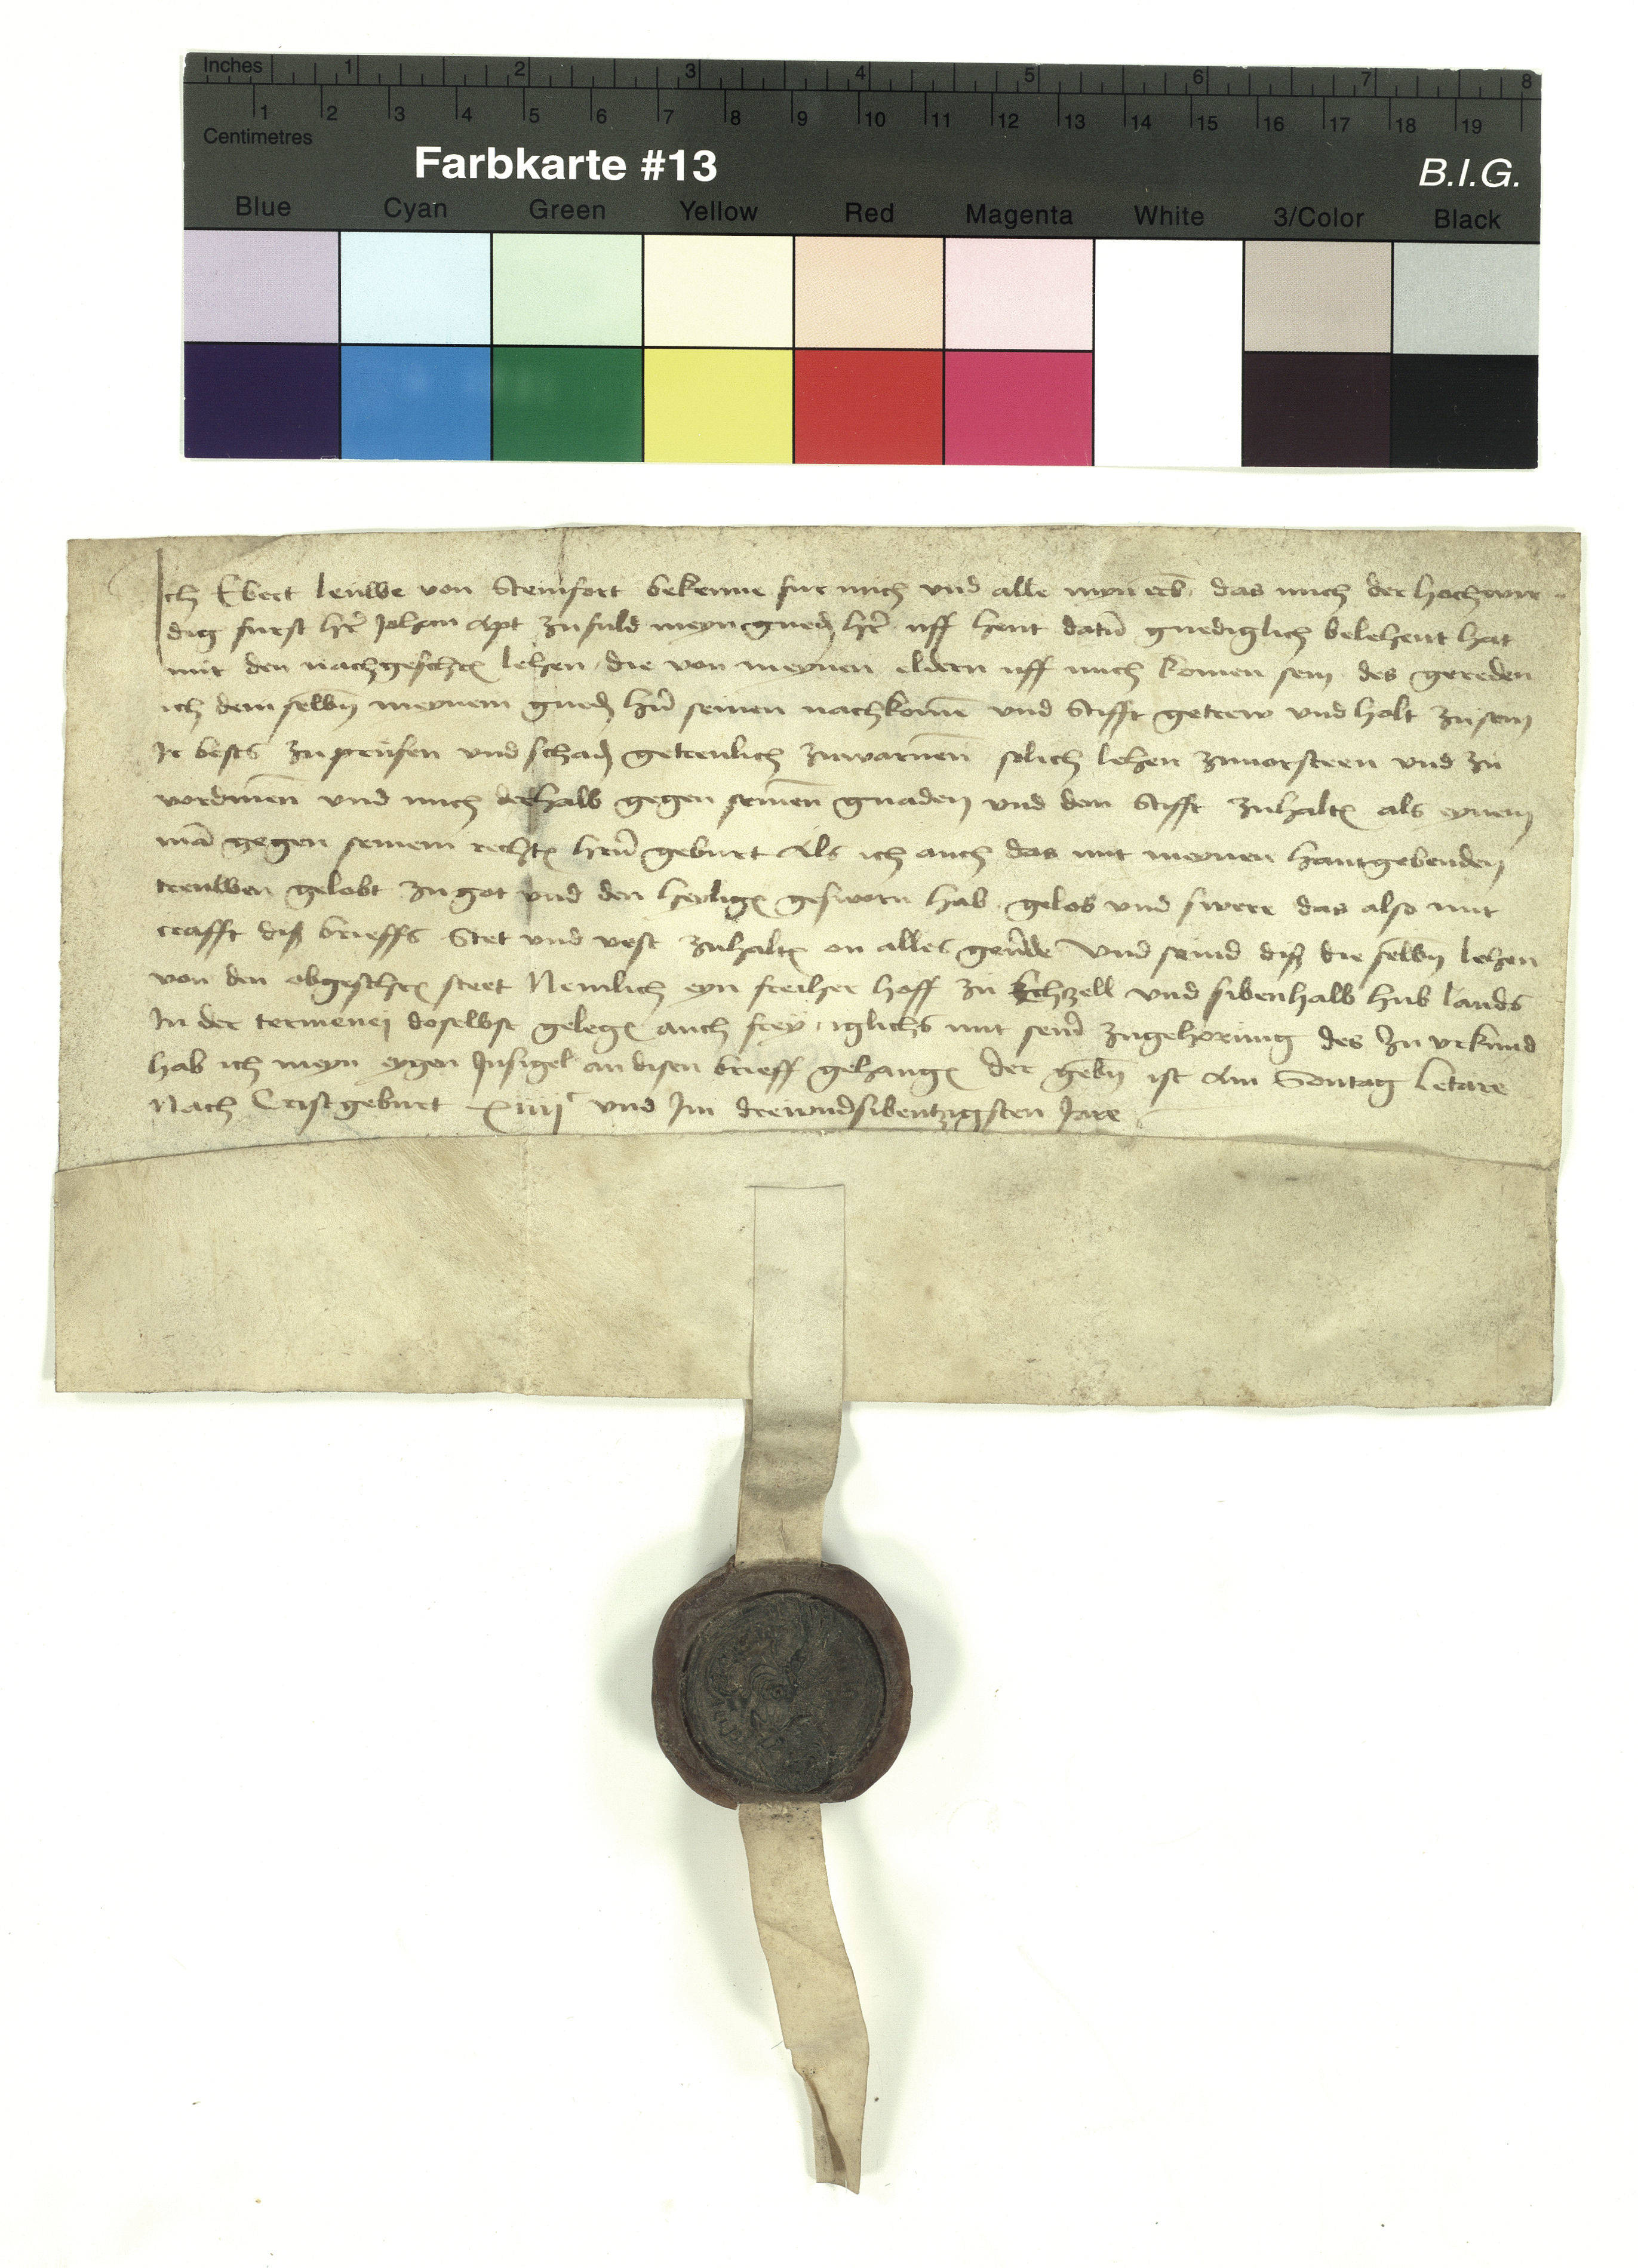 Inches 1 2 3 4 5 6 7 8
1 2 3 4 5 6 7 8 9 10 11 12 13 14 15 16 17 18 19
Centimetres
Farbkarte #13 B.I.G.
Blue Cyan Green Yellow Red Magenta White 3/Color Black
Ich Ebert leuwe von Steinfort bekenne fur mich und alle myn erb das mich der hochwir-
dig furst her Johan Apt zu fuld meyn gned her uff heut datum gnediglich belehent hat
mit den nachgeschr lehen die von meynen eldern uff mich komen sein des gereden
ich dem selbn meynem gned hern seinen nachkomen und Stifft getrew und holt zusein
Ir bests zuprufen und schad getreulich zuwarnen solich lehen zuuorsteen und zu
vordinen und mich deshalb gegen seinen gnaden und dem Stifft zuhalt als eynem
man gegen seinem recht hern geburt Als ich auch das mit meynen hantgebenden
treuwen gelobt zu got und den heylig gesworn hab gelob und swere das also mit
crafft diß brieffs Stet und vest zuhalt on alles geuerde Und seind diß die selbn lehen
von den obgeschr steet Nemlich eyn freiher hoff zu Echzell und sibenhalb hub lands
In der termenei doselbst geleg auch frey iglichs mit seiner zugehorung des zu urkund
hab ich meyn eygen Insigel an disen brieff gehang Der gebn ist Am Sontag letare
Nach Crist geburt xiiijc und Im dreiundsibentzigsten Jare